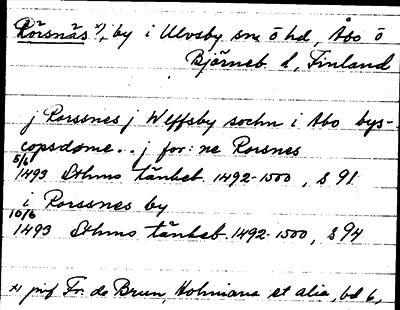 Rörsnäs x), by i Ulvsby sn ö hd, Åbo ö
Björneb. l, Finland
j Rorssnes j Wlffsby sochn i Abo bys-
copsdøme .. j for: ne Rorsnes
5/6
1493 Sthms tänkeb. 1492-1500, s 91
i Rorssnes by
10/6
1493 Sthms tänkeb. 1492-1500, s 94
x) jmf Fr. de Brun, Holmiana et alia, bd 6,